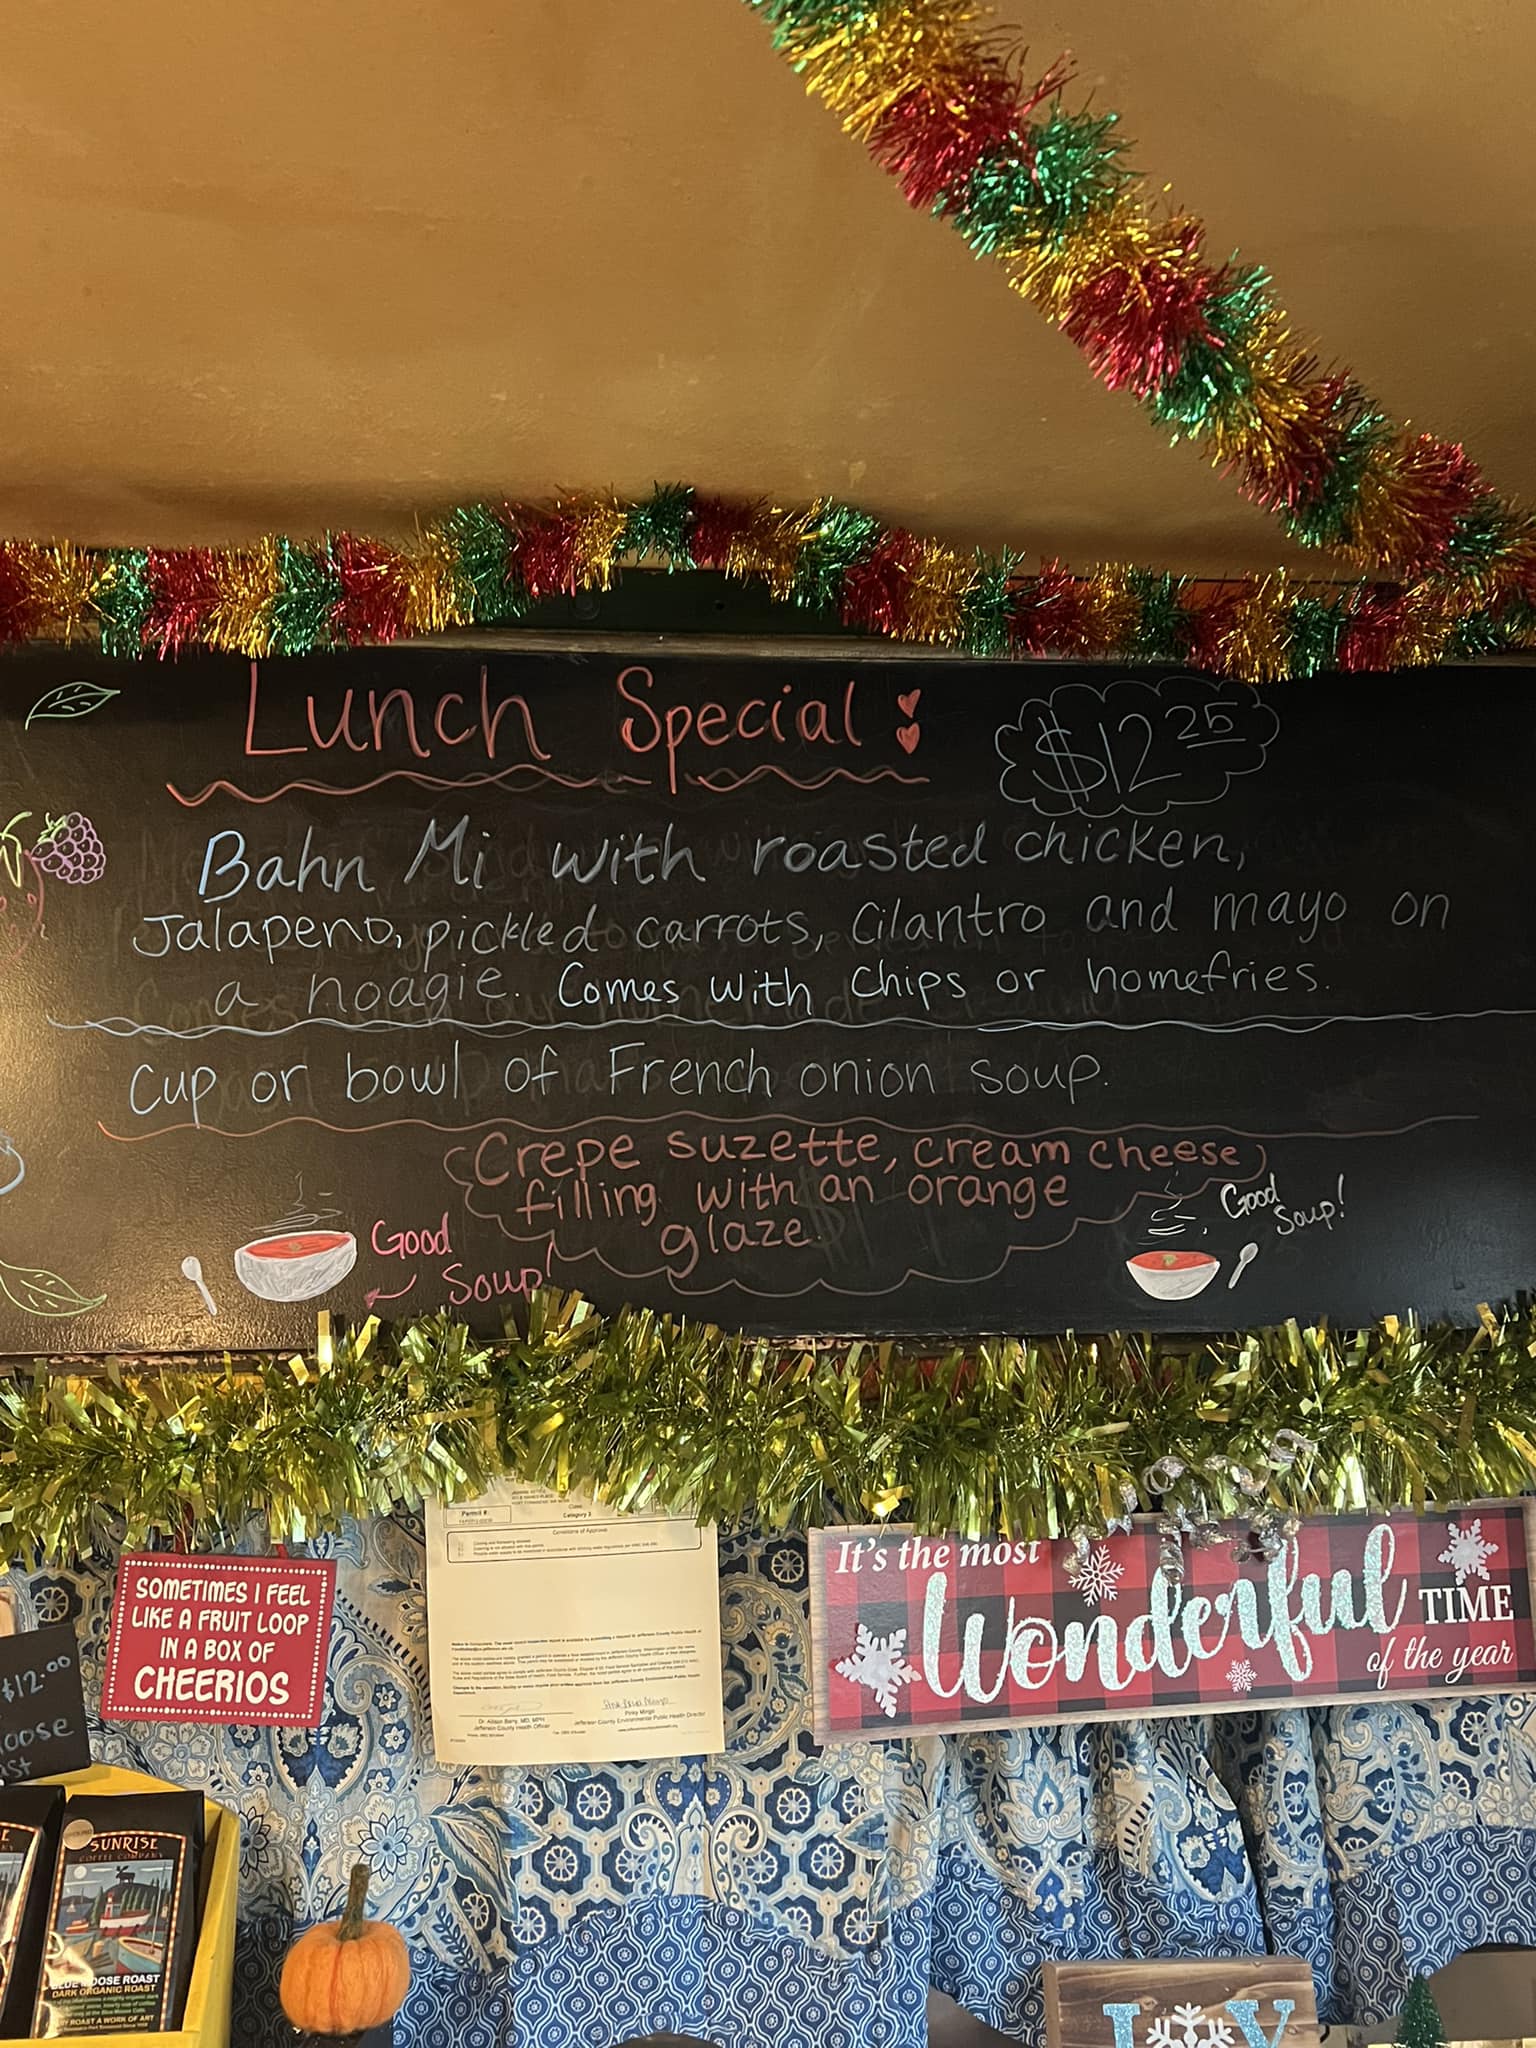 Lunch Special
$12 25
Bahn Mi with roasted chicken,
Jalapeno, pickled carrots, Cilantro and mayo on
a hoagie. Comes with chips or homefries.
Cup or bowl of French onion soup.
Crepe suzette, cream cheese
filling with an orange
glaze.
Good
Soup!
Good
Soup!
Permit #:
Category 3
Conditions of Approval
Dr. Allison Berry, MD, MPH
Jefferson County Health Officer
Pinky Mingo
Jefferson County Environmental Public Health Director
SOMETIMES I FEEL
LIKE A FRUIT LOOP
IN A BOX OF
CHEERIOS
It's the most
Wonderful TIME
of the year
$12.00
SUNRISE
COFFEE COMPANY
BLUE MOOSE ROAST
DARK ORGANIC ROAST
EVERY ROAST A WORK OF ART
JOY